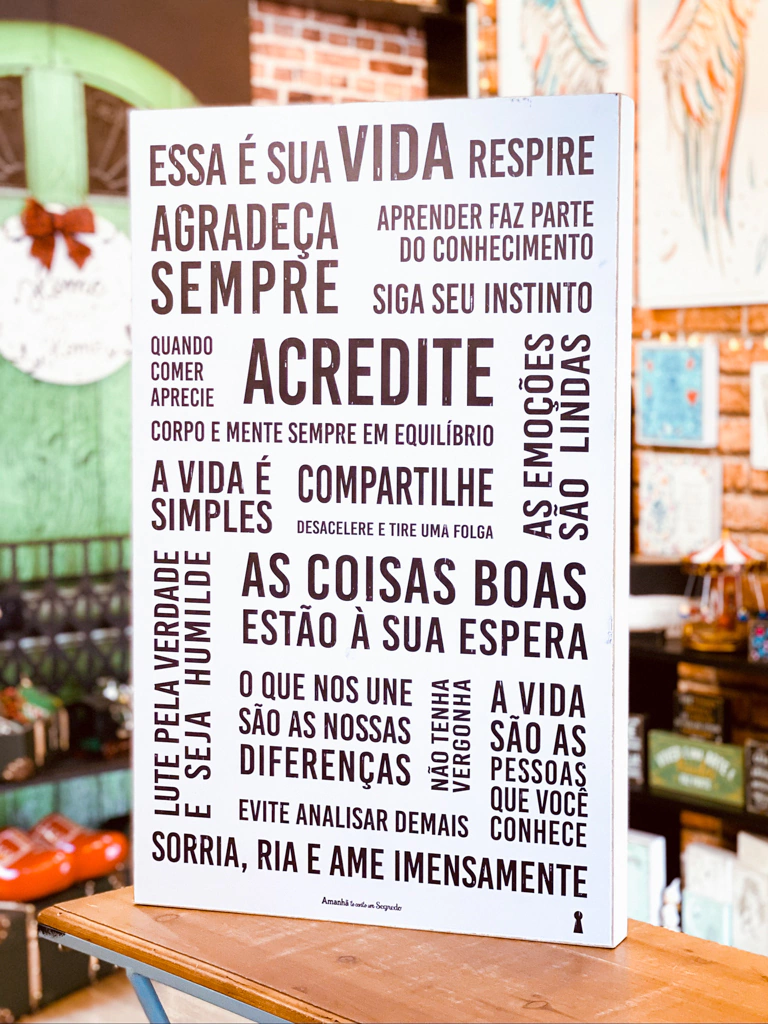 ESSA É SUA VIDA RESPIRE
AGRADEÇA
SEMPRE
APRENDER FAZ PARTE
DO CONHECIMENTO
SIGA SEU INSTINTO
QUANDO
COMER
APRECIE
ACREDITE
AS EMOÇÕES
SÃO LINDAS
CORPO E MENTE SEMPRE EM EQUILÍBRIO
A VIDA É
SIMPLES
COMPARTILHE
DESACELERE E TIRE UMA FOLGA
LUTE PELA VERDADE
E SEJA HUMILDE
AS COISAS BOAS
ESTÃO À SUA ESPERA
O QUE NOS UNE
SÃO AS NOSSAS
DIFERENÇAS
NÃO TENHA
VERGONHA
A VIDA
SÃO AS
PESSOAS
QUE VOCÊ
CONHECE
EVITE ANALISAR DEMAIS
SORRIA, RIA E AME IMENSAMENTE
Amanhã te conto um Segredo
Home